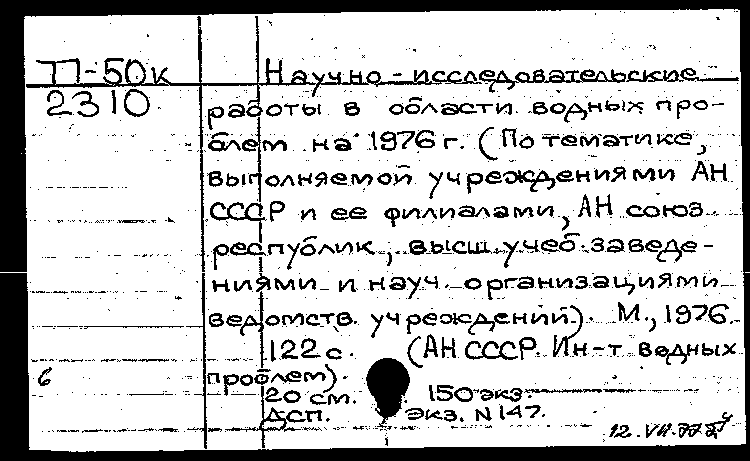 П-50к
2310
Научно-исследовательские
работы в области водных про-
блем на 1976 г. (По тематике,
выполняемой учреждениями АН
СССР и ее филиалами, АН союз.
республик, высш. учеб. заведе-
ниями и науч. организациями
ведомств. учреждений). М., 1976.
122 с. (АН СССР. Ин-т водных
проблем).
6
20 см. 150 экз.
ДСП. Экз. N 147.
12.VII.77